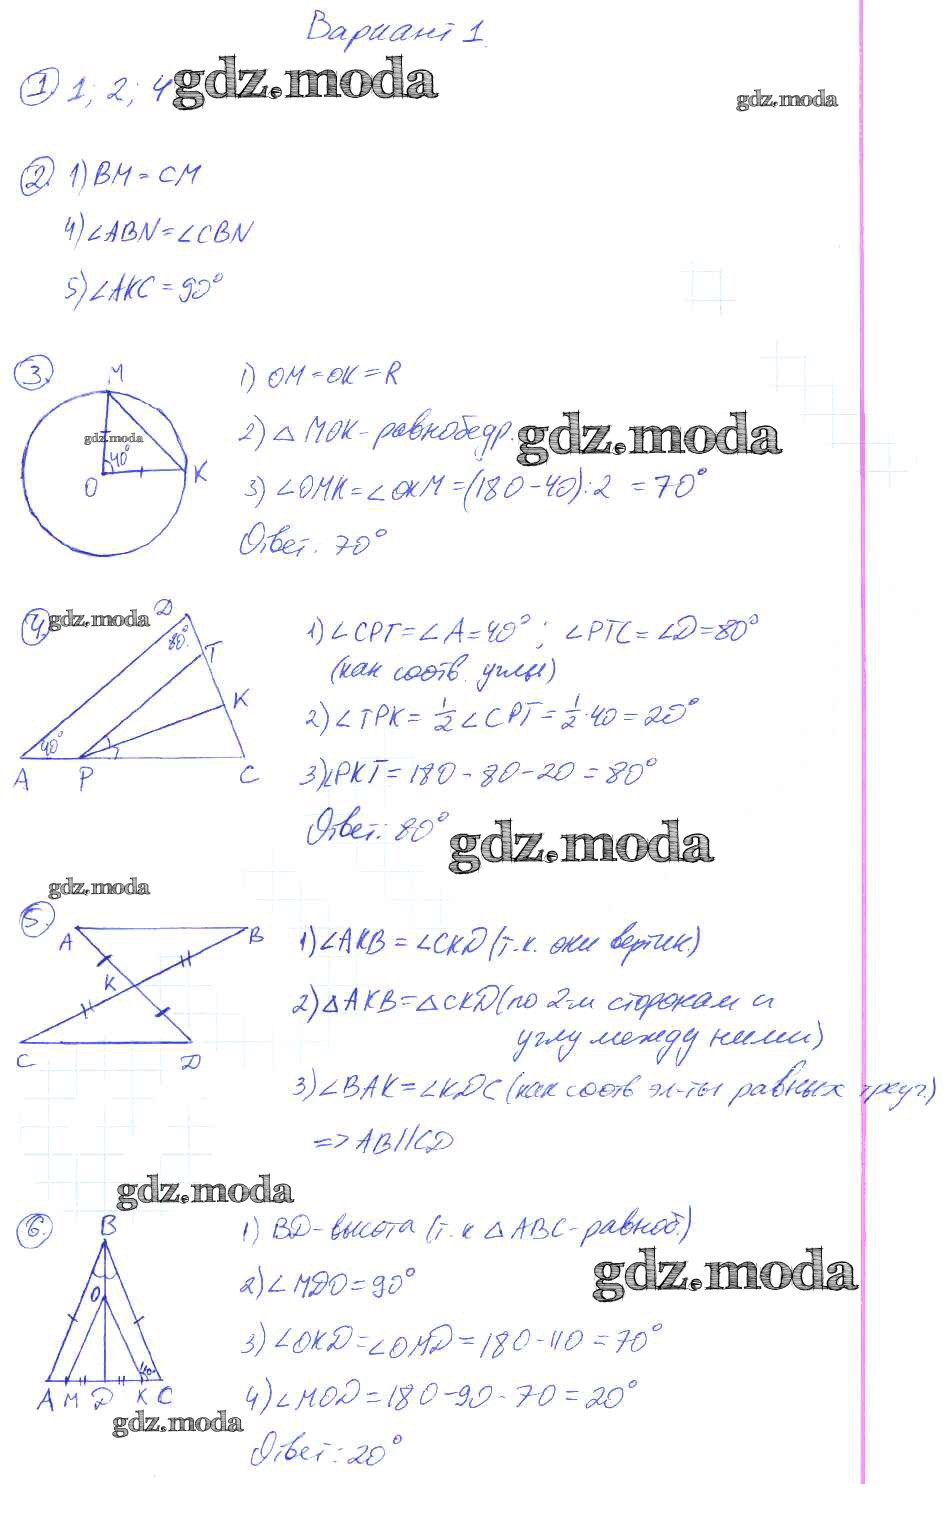 Вариант 1.
1. 1; 2; 4
gdz.moda
gdz.moda
2. 1) BM = CM
4) ∠ABN = ∠CBN
5) ∠AKC = 90°
3.
M
gdz.moda
40°
O
K
1) OM = OK = R
2) △ MOK - равнобедр.
gdz.moda
3) ∠OMK = ∠OKM = (180 - 40) : 2 = 70°
Ответ: 70°
4.
gdz.moda
D
80°
T
K
40°
A
P
C
1) ∠CPT = ∠A = 40°; ∠PTC = ∠D = 80°
(как соотв. углы)
2) ∠TPK = 1/2 ∠CPT = 1/2 · 40 = 20°
3) ∠PKT = 180 - 80 - 20 = 80°
Ответ: 80°
gdz.moda
gdz.moda
5.
A
B
K
C
D
1) ∠AKB = ∠CKD (т.к. они вертик.)
2) △AKB = △CKD (по 2-м сторонам и
углу между ними)
3) ∠BAK = ∠KDC (как соотв эл-ты равных треуг.)
=> AB || CD
gdz.moda
6.
B
O
A
M
D
K
C
gdz.moda
1) BD - высота (т.к △ ABC - равноб.)
gdz.moda
2) ∠MDO = 90°
3) ∠OKD = ∠OMD = 180 - 110 = 70°
4) ∠MOD = 180 - 90 - 70 = 20°
Ответ: 20°